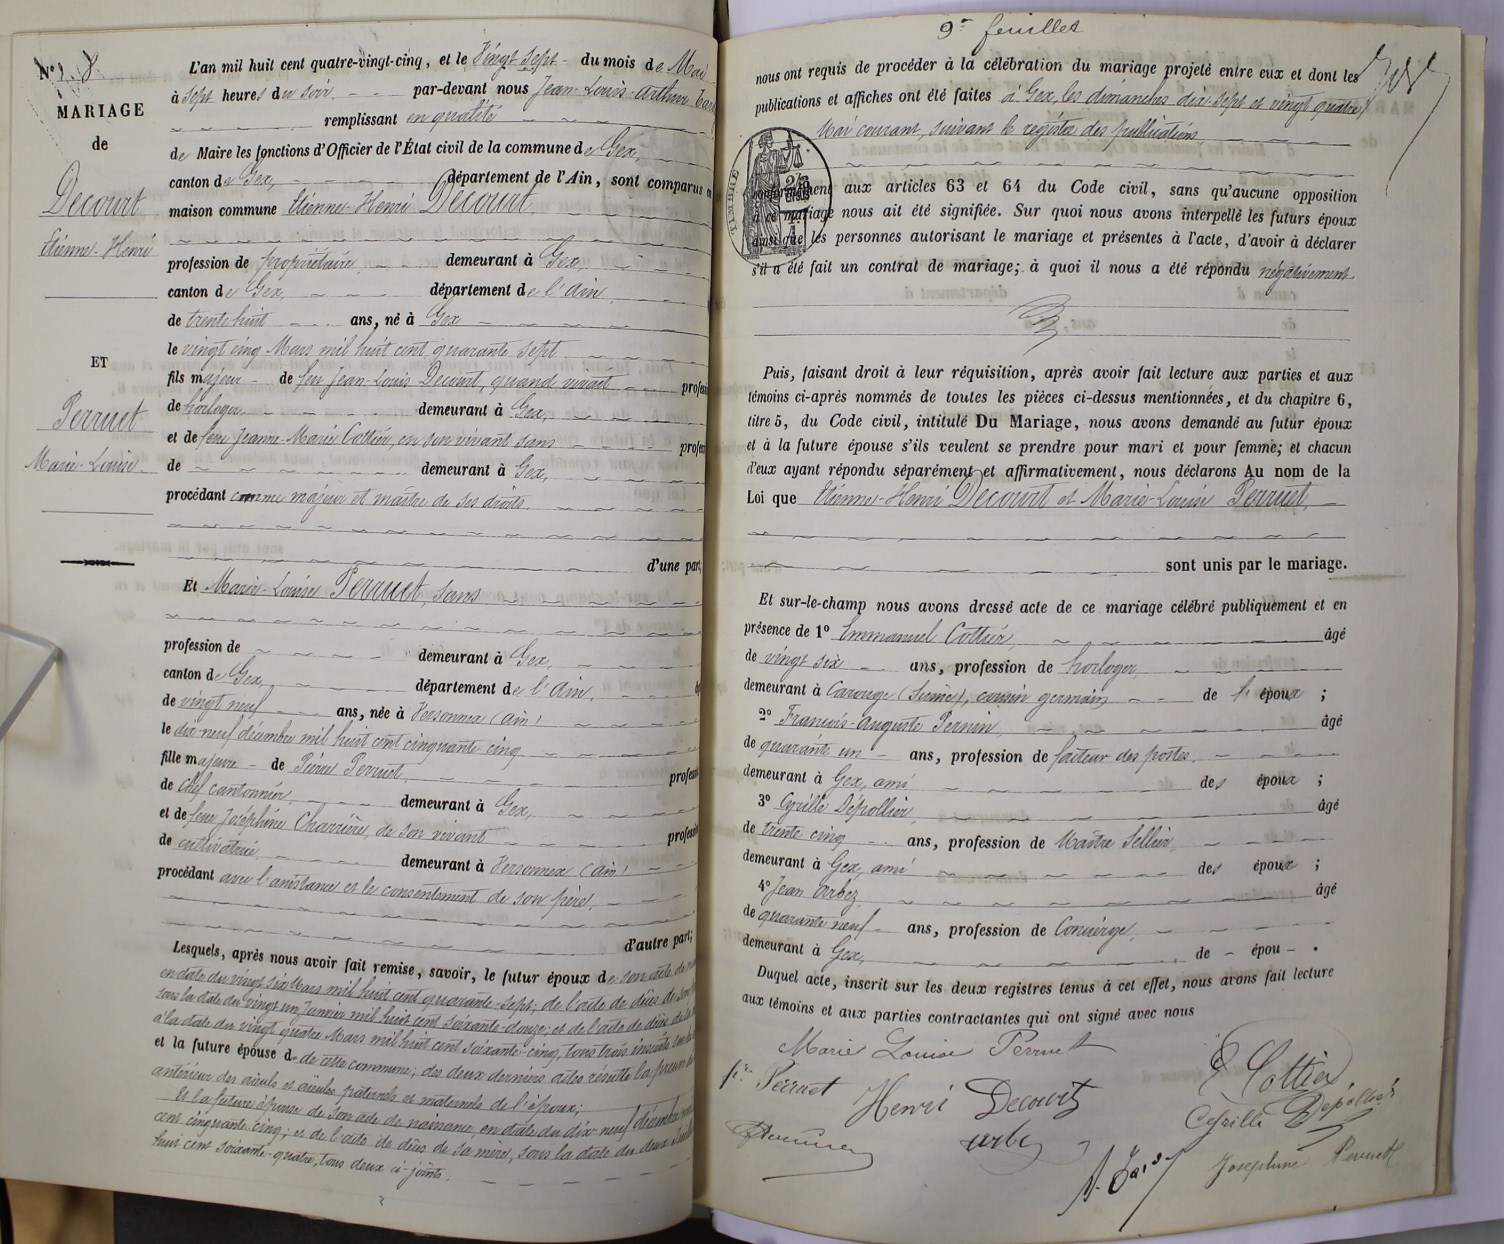 N° 8.
MARIAGE
de
Decourt
Etienne-Henri
ET
Perruet
Marie-Louise
L'an mil huit cent quatre-vingt-cinq, et le Vingt sept du mois de Mai
à sept heures du soir par-devant nous Jean-Louis-Arthur
remplissant en qualité
de Maire les fonctions d'Officier de l'État civil de la commune de Gex,
canton de Gex, département de l'Ain, sont comparus en
maison commune Etienne-Henri Decourt
profession de propriétaire demeurant à Gex,
canton de Gex, département de l'Ain
de trente huit ans, né à Gex
le vingt cinq Mars mil huit cent quarante sept
fils majeur de feu Jean-Louis Decourt, quand vivait
de horloger demeurant à Gex,
et de feue Jeanne-Marie Cottier, en son vivant sans
de demeurant à Gex,
procédant comme majeur et maître de ses droits
d'une part;
Et Marie-Louise Perruet, sans
profession de demeurant à Gex,
canton de Gex, département de l'Ain
de vingt neuf ans, née à Versonnex (Ain)
le dix-neuf décembre mil huit cent cinquante cinq
fille majeure de Pierre Perruet,
de Chef cantonnier, demeurant à Gex,
et de feue Joséphine Charrière de son vivant
de cultivatrice demeurant à Versonnex (Ain)
procédant avec l'assistance et le consentement de son père.
d'autre part;
Lesquels, après nous avoir fait remise, savoir, le futur époux de son acte de
en date du vingt six Mars mil huit cent quarante-sept; de l'acte de décès de son
sous la date du vingt un Janvier mil huit cent soixante-douze; et de l'acte de décès de
à la date du vingt quatre Mars mil huit cent soixante-cinq, tous trois inscrits
et la future épouse d de cette commune; des deux derniers actes résulte la preuve
antérieur des aïeuls et aïeules paternels et maternels de l'époux;
Et la future épouse de son acte de naissance, en date du dix-neuf décembre
cent cinquante cinq; et de l'acte de décès de sa mère, sous la date du deux
huit cent soixante-quatre, tous deux ci-joints.
9e feuillet
nous ont requis de procéder à la célébration du mariage projeté entre eux et dont les
publications et affiches ont été faites à Gex, les dimanches dix sept et vingt quatre
Mai courant, suivant le registre des publications
TIMBRE
conformément aux articles 63 et 64 du Code civil, sans qu'aucune opposition
à ce mariage nous ait été signifiée. Sur quoi nous avons interpellé les futurs époux
ainsi que les personnes autorisant le mariage et présentes à l'acte, d'avoir à déclarer
s'il a été fait un contrat de mariage; à quoi il nous a été répondu négativement.
Puis, faisant droit à leur réquisition, après avoir fait lecture aux parties et aux
témoins ci-après nommés de toutes les pièces ci-dessus mentionnées, et du chapitre 6,
titre 5, du Code civil, intitulé Du Mariage, nous avons demandé au futur époux
et à la future épouse s'ils veulent se prendre pour mari et pour femme; et chacun
d'eux ayant répondu séparément et affirmativement, nous déclarons Au nom de la
Loi que Etienne-Henri Decourt et Marie-Louise Perruet,
sont unis par le mariage.
Et sur-le-champ nous avons dressé acte de ce mariage célébré publiquement et en
présence de 1° Emmanuel Cottier, âgé
de vingt six ans, profession de horloger,
demeurant à Carouge (Suisse), cousin germain de l'époux ;
2° François-Auguste Perrin, âgé
de quarante un ans, profession de facteur des postes
demeurant à Gex, ami des époux ;
3° Cyrille Dépollier, âgé
de trente cinq ans, profession de Maître Sellier,
demeurant à Gex, ami des époux ;
4° Jean Arbez âgé
de quarante neuf ans, profession de Concierge,
demeurant à Gex, de - épou - .
Duquel acte, inscrit sur les deux registres tenus à cet effet, nous avons fait lecture
aux témoins et aux parties contractantes qui ont signé avec nous
Marie Louise Perruet
Perruet Henri Decourt E Cottier
Cyrille Dépollier
Arbez
Joséphine Perruet